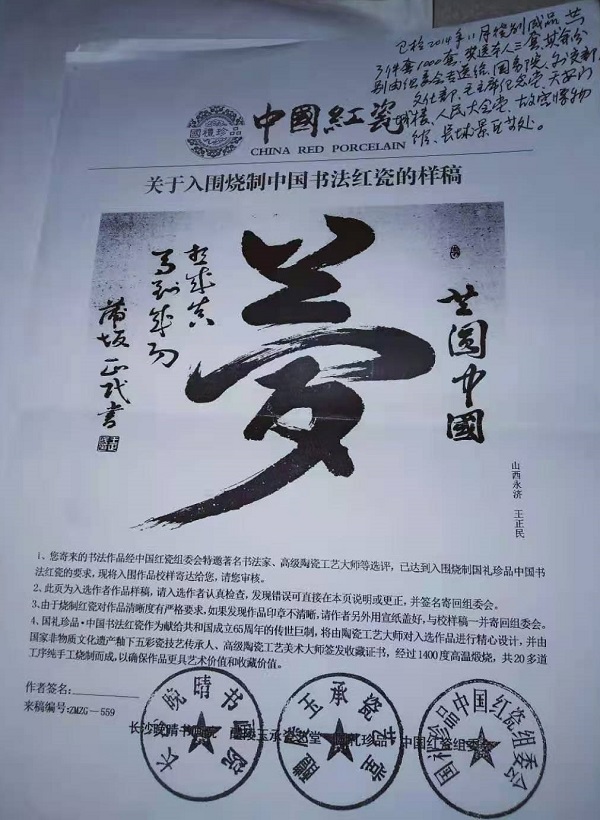 已于2014年11月烧制成品共
3件套1000套,奖送本人三套,其余分
别由组委会专送给、国务院、外交部、
文化部、毛主席纪念堂、天安门
城楼、人民大会堂、故宫博物
馆、长城景区等处。
國禮珍品
中國紅瓷
CHINA RED PORCELAIN
关于入围烧制中国书法红瓷的样稿
共圆中國
夢
想成真
马到成功
蒲坂正民書
山西永济 王正民
1、您寄来的书法作品经中国红瓷组委会特邀著名书法家、高级陶瓷工艺大师等选评,已达到入围烧制国礼珍品中国书
法红瓷的要求,现将入围作品校样寄达给您,请您审核。
2、此页为入选作者作品样稿,请入选作者认真检查,发现错误可直接在本页说明或更正,并签名寄回组委会。
3、由于烧制红瓷对作品清晰度有严格要求,如果发现作品印章不清晰,请作者另外用宣纸盖好,与校样稿一并寄回组委会。
4、国礼珍品·中国书法红瓷作为献给共和国成立65周年的传世巨制,将由陶瓷工艺大师对入选作品进行精心设计,并由
国家非物质文化遗产釉下五彩瓷技艺传承人、高级陶瓷工艺美术大师签发收藏证书,经过1400度高温煅烧,共20多道
工序纯手工烧制而成,以确保作品更具艺术价值和收藏价值。
作者签名:
来稿编号:ZMZG-559
长沙晥晴书画院 醴陵玉承瓷艺堂 国礼珍品·中国红瓷组委会
长沙晥晴书画院
醴陵玉承瓷艺堂
国礼珍品中国红瓷组委会